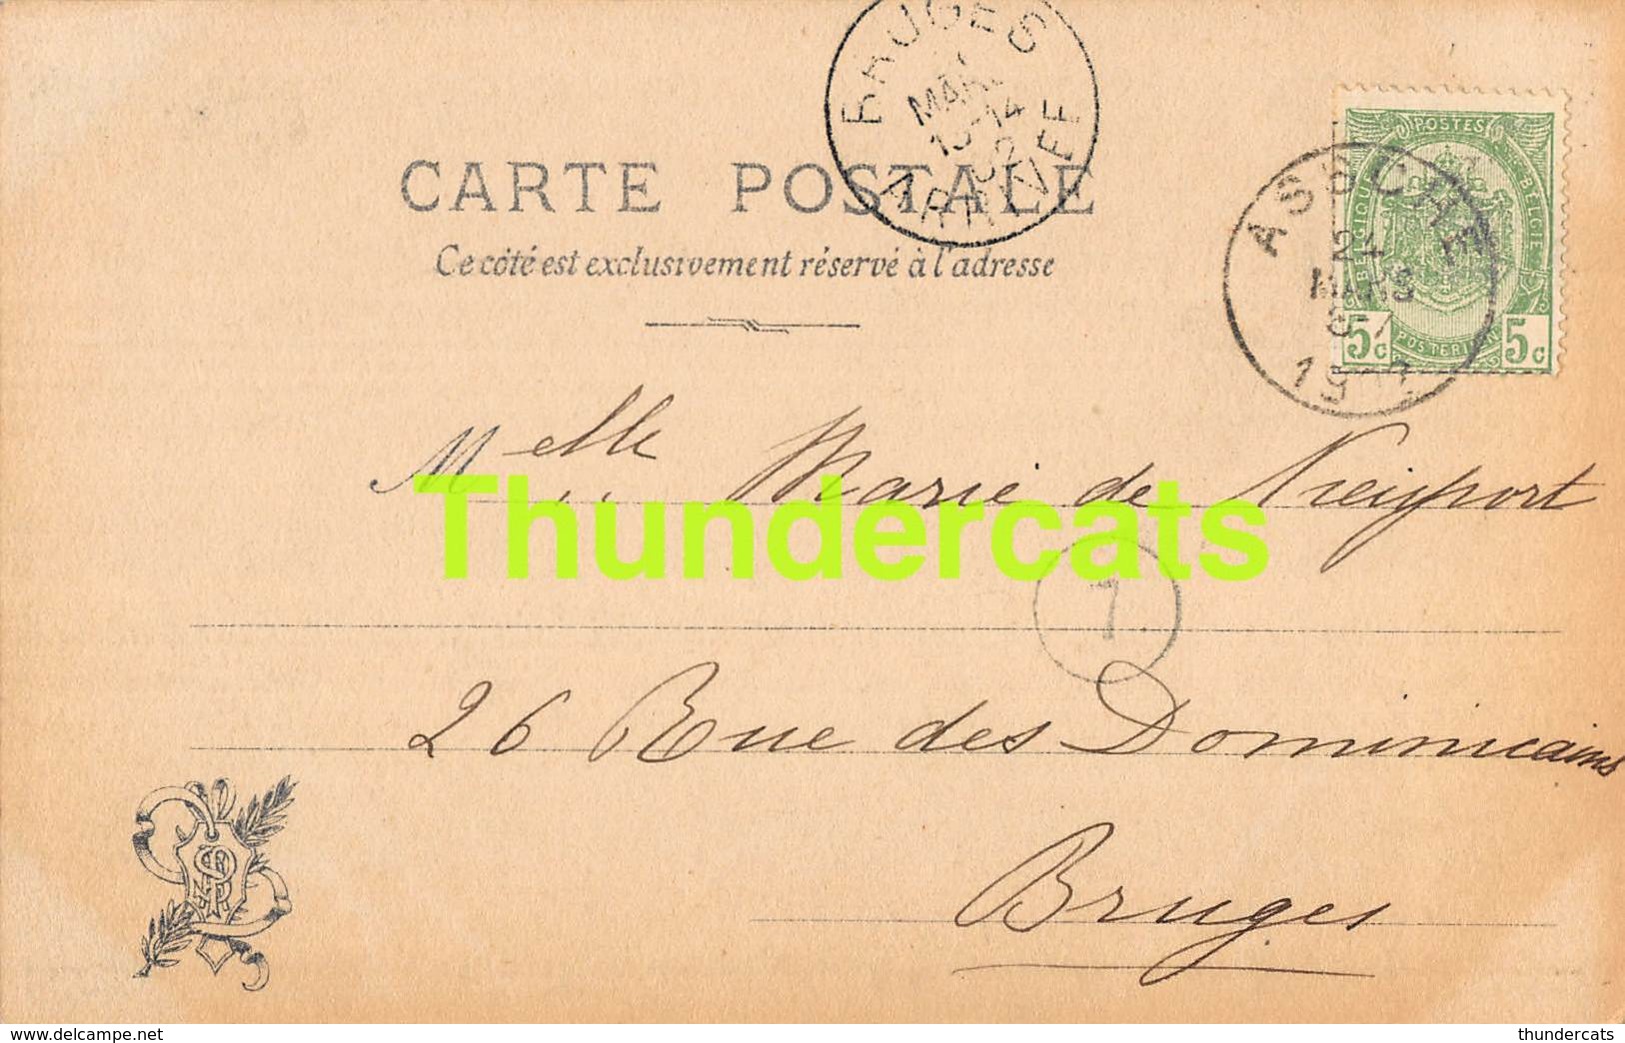 BRUGES
MARS
13-14
02
ARRIVEE
CARTE POSTALE
Ce côté est exclusivement réservé à l'adresse
POSTES
BELGIQUE BELGIË
5c 5c
POSTERIJEN
ASSCHE
24
MARS
Melle Marie de Nieuport
Thundercats
7
26 Rue des Dominicains
Bruges
delcampe.net
thundercats